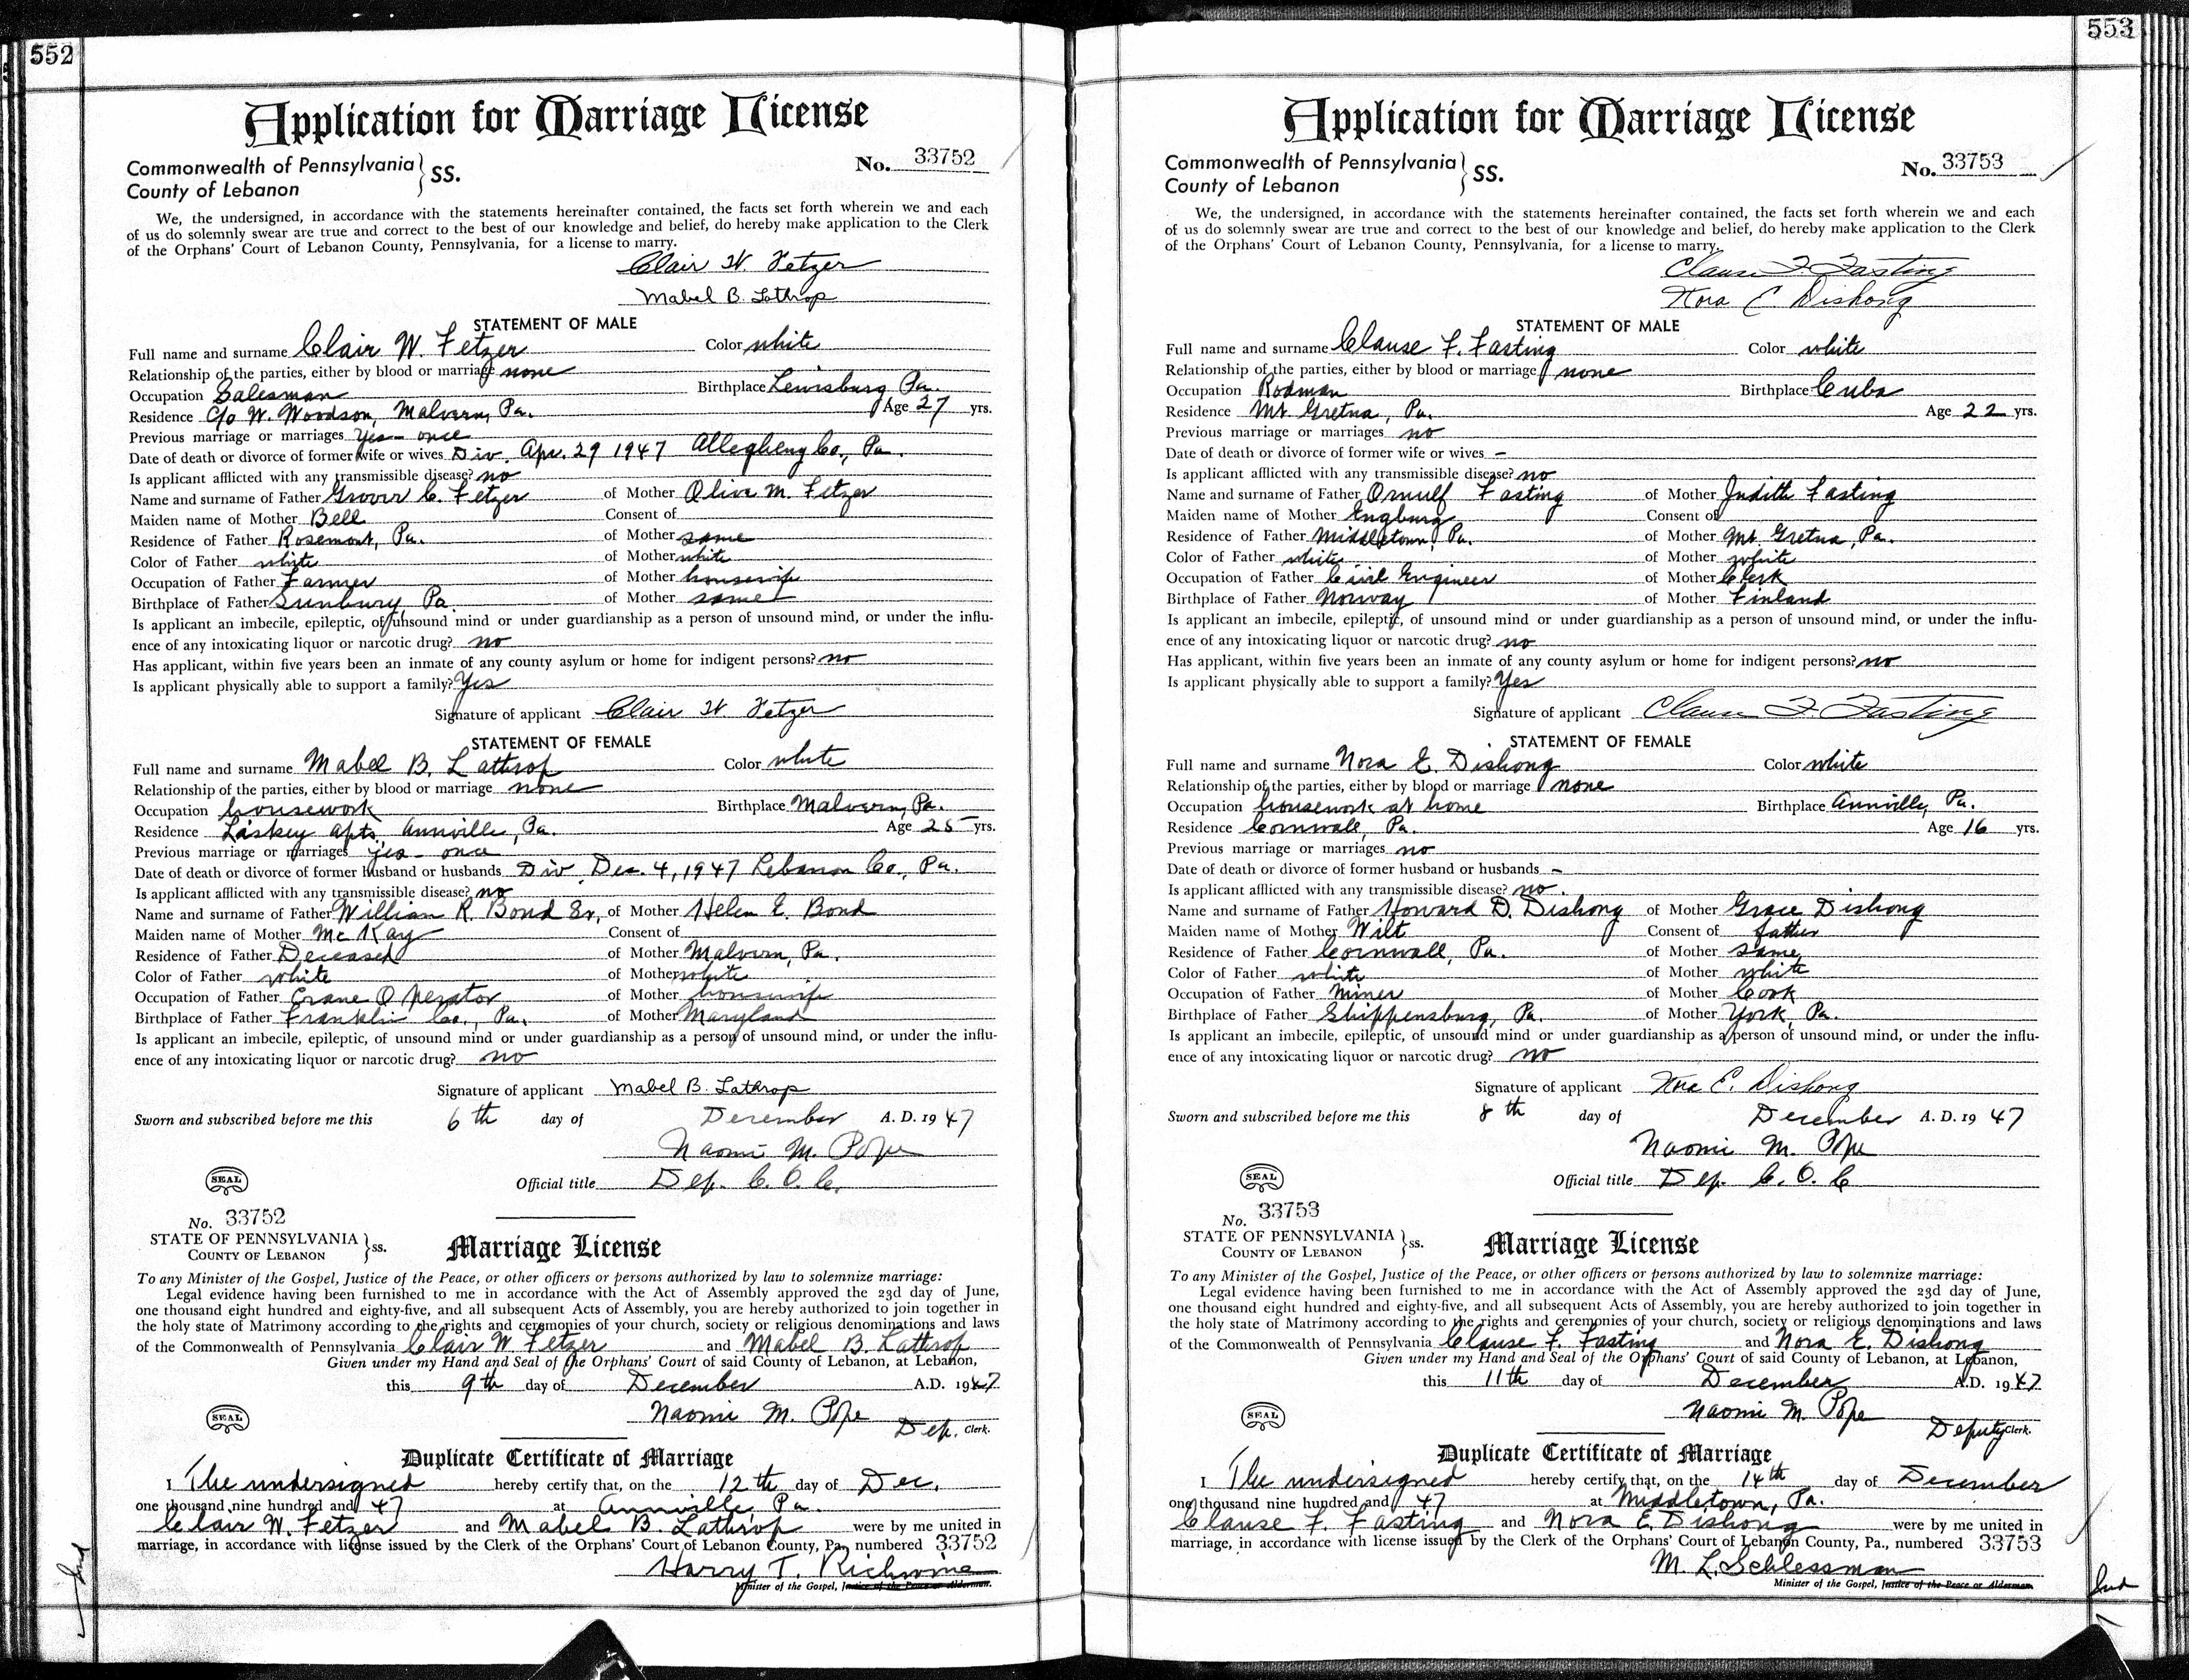 552
Application for Marriage License
Commonwealth of Pennsylvania } SS.
County of Lebanon
No. 33752
We, the undersigned, in accordance with the statements hereinafter contained, the facts set forth wherein we and each
of us do solemnly swear are true and correct to the best of our knowledge and belief, do hereby make application to the Clerk
of the Orphans' Court of Lebanon County, Pennsylvania, for a license to marry.
Clair W. Fetzer
Mabel B. Lathrop
STATEMENT OF MALE
Full name and surname Clair W. Fetzer Color white
Relationship of the parties, either by blood or marriage none
Occupation Salesman Birthplace Lewisburg Pa.
Residence C/o W. Woodson, Malvern, Pa. Age 27 yrs.
Previous marriage or marriages Yes - once
Date of death or divorce of former wife or wives Div. Apr. 29 1947 Allegheny Co., Pa.
Is applicant afflicted with any transmissible disease? no
Name and surname of Father Grover C. Fetzer of Mother Olive M. Fetzer
Maiden name of Mother Bell Consent of
Residence of Father Rosemont, Pa. of Mother same
Color of Father white of Mother white
Occupation of Father Farmer of Mother housewife
Birthplace of Father Sunbury, Pa. of Mother same
Is applicant an imbecile, epileptic, of unsound mind or under guardianship as a person of unsound mind, or under the influ-
ence of any intoxicating liquor or narcotic drug? no
Has applicant, within five years been an inmate of any county asylum or home for indigent persons? no
Is applicant physically able to support a family? Yes
Signature of applicant Clair W. Fetzer
STATEMENT OF FEMALE
Full name and surname Mabel B. Lathrop Color white
Relationship of the parties, either by blood or marriage none
Occupation housework Birthplace Malvern, Pa.
Residence Laskey Apts, Annville, Pa. Age 25 yrs.
Previous marriage or marriages yes - once
Date of death or divorce of former husband or husbands Div. Dec. 4, 1947 Lebanon Co., Pa.
Is applicant afflicted with any transmissible disease? no
Name and surname of Father William R. Bond Sr. of Mother Helen E. Bond
Maiden name of Mother McKay Consent of
Residence of Father Deceased of Mother Malvern, Pa.
Color of Father white of Mother white
Occupation of Father Crane Operator of Mother housewife
Birthplace of Father Franklin Co., Pa. of Mother Maryland
Is applicant an imbecile, epileptic, of unsound mind or under guardianship as a person of unsound mind, or under the influ-
ence of any intoxicating liquor or narcotic drug? no
Signature of applicant Mabel B. Lathrop
Sworn and subscribed before me this 6th day of December A. D. 1947
Naomi M. Pope
SEAL
Official title Dep. C. O. C.
No. 33752
STATE OF PENNSYLVANIA } ss.
COUNTY OF LEBANON
Marriage License
To any Minister of the Gospel, Justice of the Peace, or other officers or persons authorized by law to solemnize marriage:
Legal evidence having been furnished to me in accordance with the Act of Assembly approved the 23d day of June,
one thousand eight hundred and eighty-five, and all subsequent Acts of Assembly, you are hereby authorized to join together in
the holy state of Matrimony according to the rights and ceremonies of your church, society or religious denominations and laws
of the Commonwealth of Pennsylvania Clair W Fetzer and Mabel B. Lathrop
Given under my Hand and Seal of the Orphans' Court of said County of Lebanon, at Lebanon,
this 9th day of December A.D. 1947
Naomi M. Pope
SEAL
Dep. Clerk.
Duplicate Certificate of Marriage
I The undersigned hereby certify that, on the 12th day of Dec.
one thousand nine hundred and 47 at Annville, Pa.
Clair W. Fetzer and Mabel B. Lathrop were by me united in
marriage, in accordance with license issued by the Clerk of the Orphans' Court of Lebanon County, Pa., numbered 33752
Harry T. Richwine
Minister of the Gospel, Justice of the Peace or Alderman.
553
Application for Marriage License
Commonwealth of Pennsylvania } SS.
County of Lebanon
No. 33753
We, the undersigned, in accordance with the statements hereinafter contained, the facts set forth wherein we and each
of us do solemnly swear are true and correct to the best of our knowledge and belief, do hereby make application to the Clerk
of the Orphans' Court of Lebanon County, Pennsylvania, for a license to marry.
Clause F. Fasting
Nora E Dishong
STATEMENT OF MALE
Full name and surname Clause F. Fasting Color white
Relationship of the parties, either by blood or marriage none
Occupation Rodman Birthplace Cuba
Residence Mt. Gretna, Pa. Age 22 yrs.
Previous marriage or marriages no
Date of death or divorce of former wife or wives -
Is applicant afflicted with any transmissible disease? no
Name and surname of Father Ornulf Fasting of Mother Judith Fasting
Maiden name of Mother Engburg Consent of
Residence of Father Middletown, Pa. of Mother Mt. Gretna, Pa.
Color of Father white of Mother white
Occupation of Father Civil Engineer of Mother Clerk
Birthplace of Father Norway of Mother Finland
Is applicant an imbecile, epileptic, of unsound mind or under guardianship as a person of unsound mind, or under the influ-
ence of any intoxicating liquor or narcotic drug? no
Has applicant, within five years been an inmate of any county asylum or home for indigent persons? no
Is applicant physically able to support a family? Yes
Signature of applicant Clause F. Fasting
STATEMENT OF FEMALE
Full name and surname Nora E. Dishong Color white
Relationship of the parties, either by blood or marriage none
Occupation housework at home Birthplace Annville, Pa.
Residence Cornwall, Pa. Age 16 yrs.
Previous marriage or marriages no
Date of death or divorce of former husband or husbands -
Is applicant afflicted with any transmissible disease? no.
Name and surname of Father Howard D. Dishong of Mother Grace Dishong
Maiden name of Mother Wilt Consent of father
Residence of Father Cornwall, Pa. of Mother same
Color of Father white of Mother white
Occupation of Father Miner of Mother Cook
Birthplace of Father Shippensburg, Pa. of Mother York, Pa.
Is applicant an imbecile, epileptic, of unsound mind or under guardianship as a person of unsound mind, or under the influ-
ence of any intoxicating liquor or narcotic drug? no
Signature of applicant Nora E. Dishong
Sworn and subscribed before me this 8th day of December A. D. 1947
Naomi M. Pope
SEAL
Official title Dep. C. O. C
No. 33753
STATE OF PENNSYLVANIA } ss.
COUNTY OF LEBANON
Marriage License
To any Minister of the Gospel, Justice of the Peace, or other officers or persons authorized by law to solemnize marriage:
Legal evidence having been furnished to me in accordance with the Act of Assembly approved the 23d day of June,
one thousand eight hundred and eighty-five, and all subsequent Acts of Assembly, you are hereby authorized to join together in
the holy state of Matrimony according to the rights and ceremonies of your church, society or religious denominations and laws
of the Commonwealth of Pennsylvania Clause F. Fasting and Nora E. Dishong
Given under my Hand and Seal of the Orphans' Court of said County of Lebanon, at Lebanon,
this 11th day of December A.D. 1947
Naomi M. Pope
SEAL
Deputy Clerk.
Duplicate Certificate of Marriage
I The undersigned hereby certify that, on the 14th day of December
one thousand nine hundred and 47 at Middletown, Pa.
Clause F. Fasting and Nora E. Dishong were by me united in
marriage, in accordance with license issued by the Clerk of the Orphans' Court of Lebanon County, Pa., numbered 33753
M. L. Schlessman
Minister of the Gospel, Justice of the Peace or Alderman.